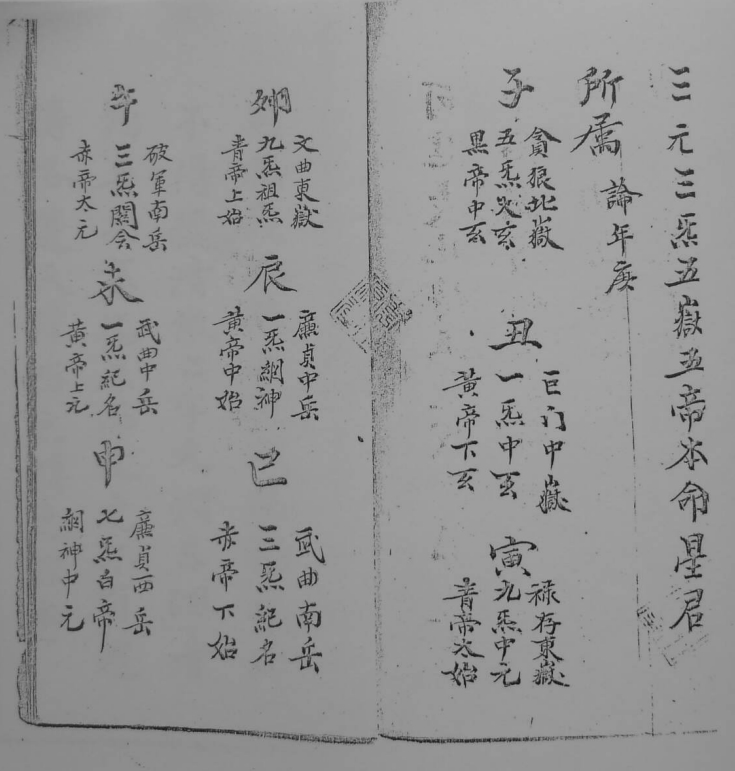 三元三炁五嶽五帝本命星君
所属論年庚
子
貪狼北嶽
五炁玄
黒帝中玄
丑
巨门中嶽
一炁中玄
黃帝下玄
寅
禄存東嶽
九炁中元
青帝太始
卯
文曲東嶽
九炁祖炁
青帝上始
辰
廉貞中岳
一炁神
黃帝中始
巳
武曲南岳
三炁紀名
赤帝下始
午
破軍南岳
三炁閞令
赤帝太元
未
武曲中岳
一炁紀名
黃帝上元
申
廉貞西岳
七炁白帝
神中元